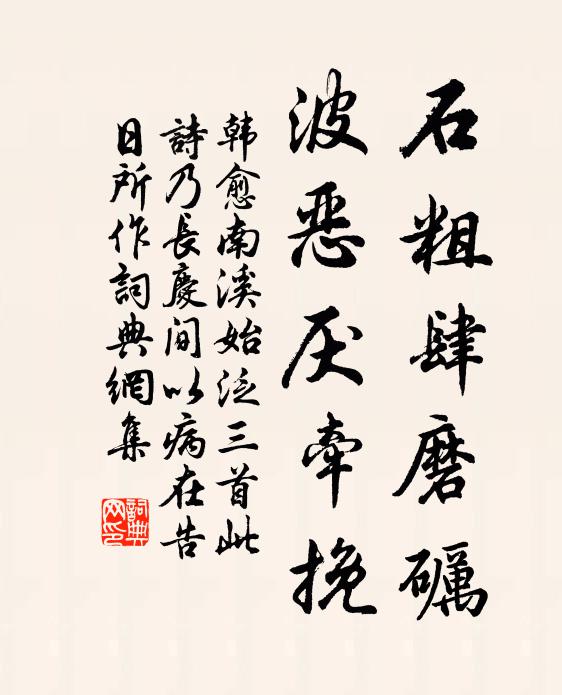 石粗肆磨礪
波恶厌牵挽
韩愈南溪始泛三首此
詩乃長慶间以病在告
日所作詞典網集
詞典网印